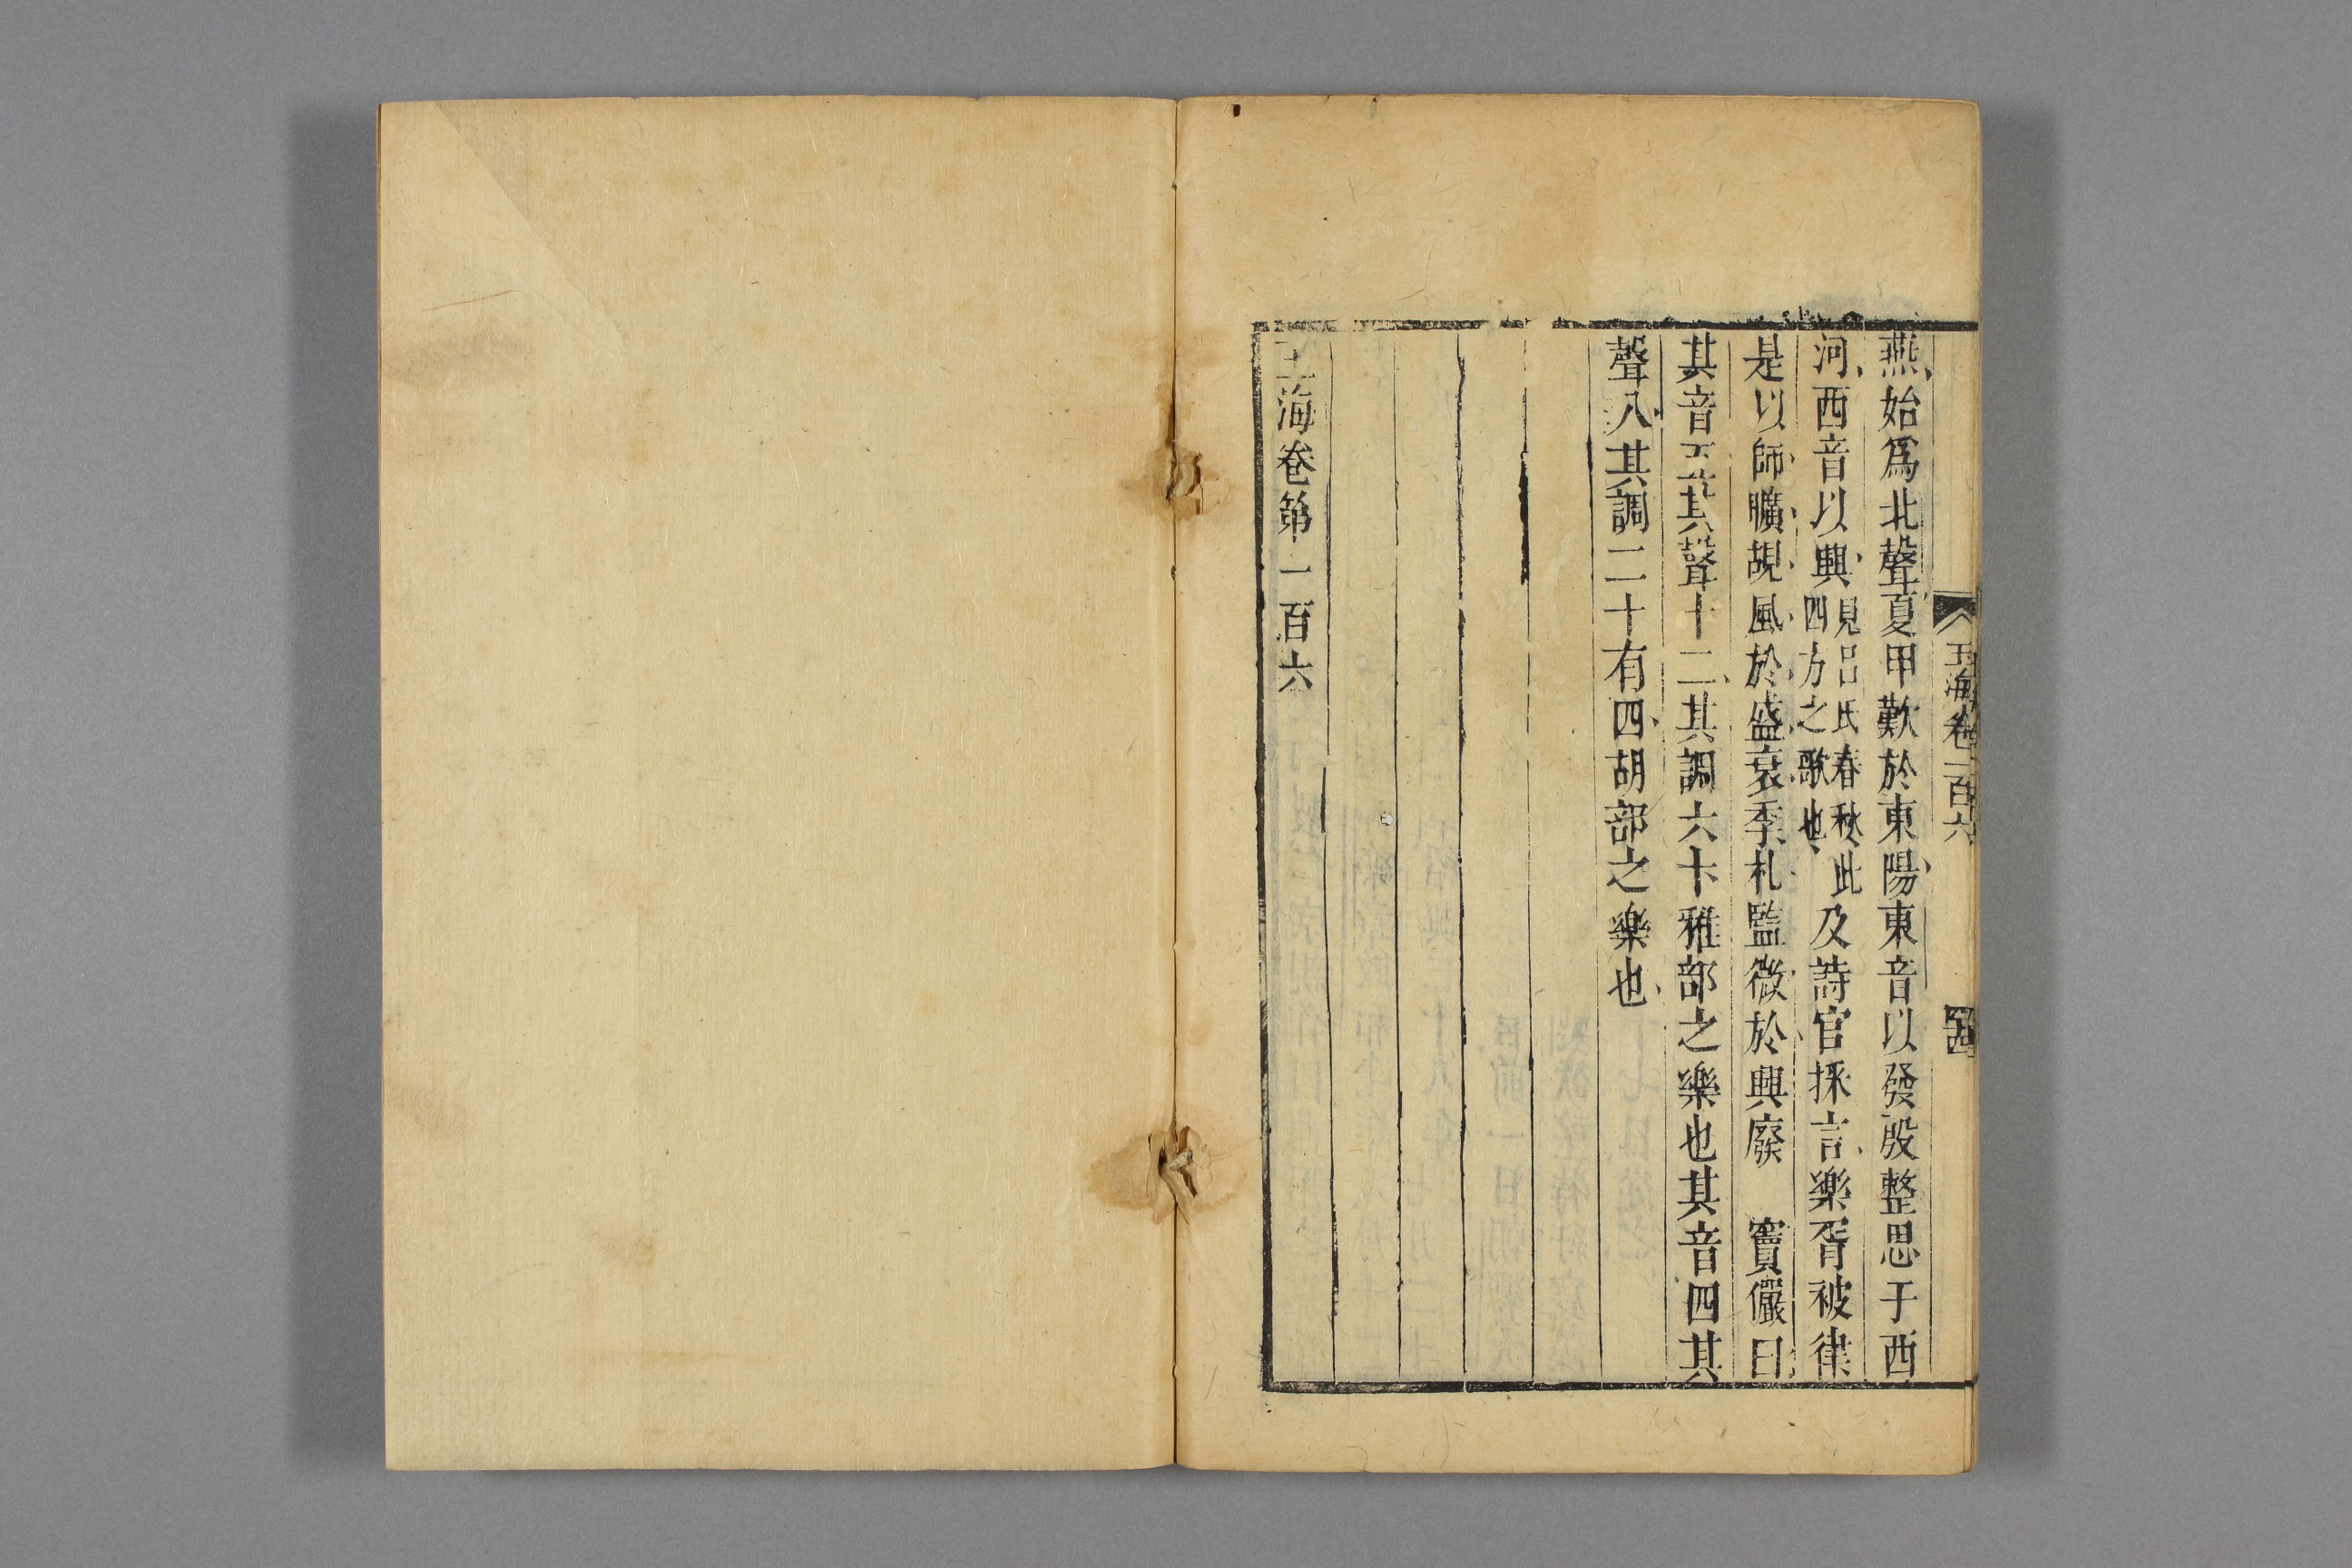 燕始爲北聲夏甲歎於東陽東音以發殷整思于西
河西音以興見呂氏春秋此四方之歌也及詩官採言樂胥被律
是以師曠覘風於盛衰季札監微於興廢　竇儼曰
其音五其聲十二其調六十雅部之樂也其音四其
聲八其調二十有四胡部之樂也
玉海卷第一百六
玉海卷一百六